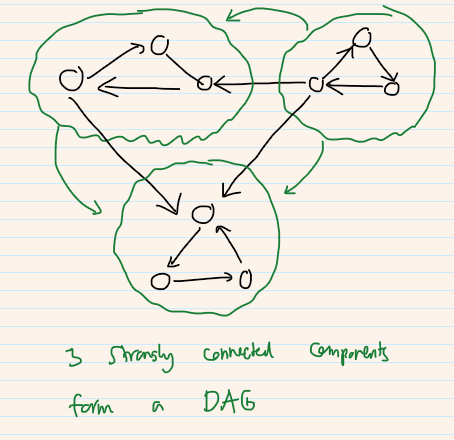 3 strongly connected components
form a DAG